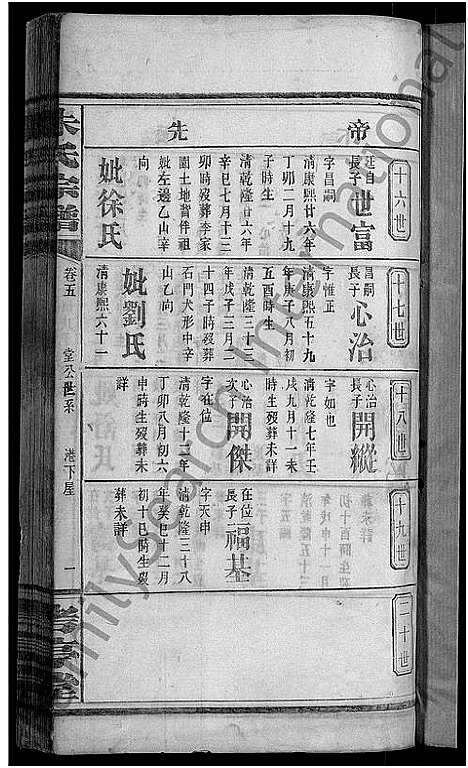 帝
先
十六世
廷自
長子
世富
字昌嗣
清康熙廿六年
丁卯二月十九
子時生
清乾隆廿六年
辛巳七月十三
卯時歿葬李家
園土地背件祖
妣左邊乙山辛
向
妣徐氏
十七世
昌嗣
長子
心治
字惟正
清康熙五十九
年庚子八月初
五酉時生
清乾隆三十三
年戊子二月二
十四子時歿葬
石門犬形中辛
山乙向
妣劉氏
清康熙六十一
十八世
心治
長子
開縱
字如也
清乾隆七年壬
戌九月十一未
時生歿葬未詳
心治
次子
開傑
字在位
清乾隆十二年
丁卯八月初六
申時生歿葬未
詳
十九世
在位
長子
福基
字天申
清乾隆三十八
年癸巳十二月
初十巳時生歿
葬未詳
二十世
朱氏宗譜
卷五
堂公世系
港下屋
一